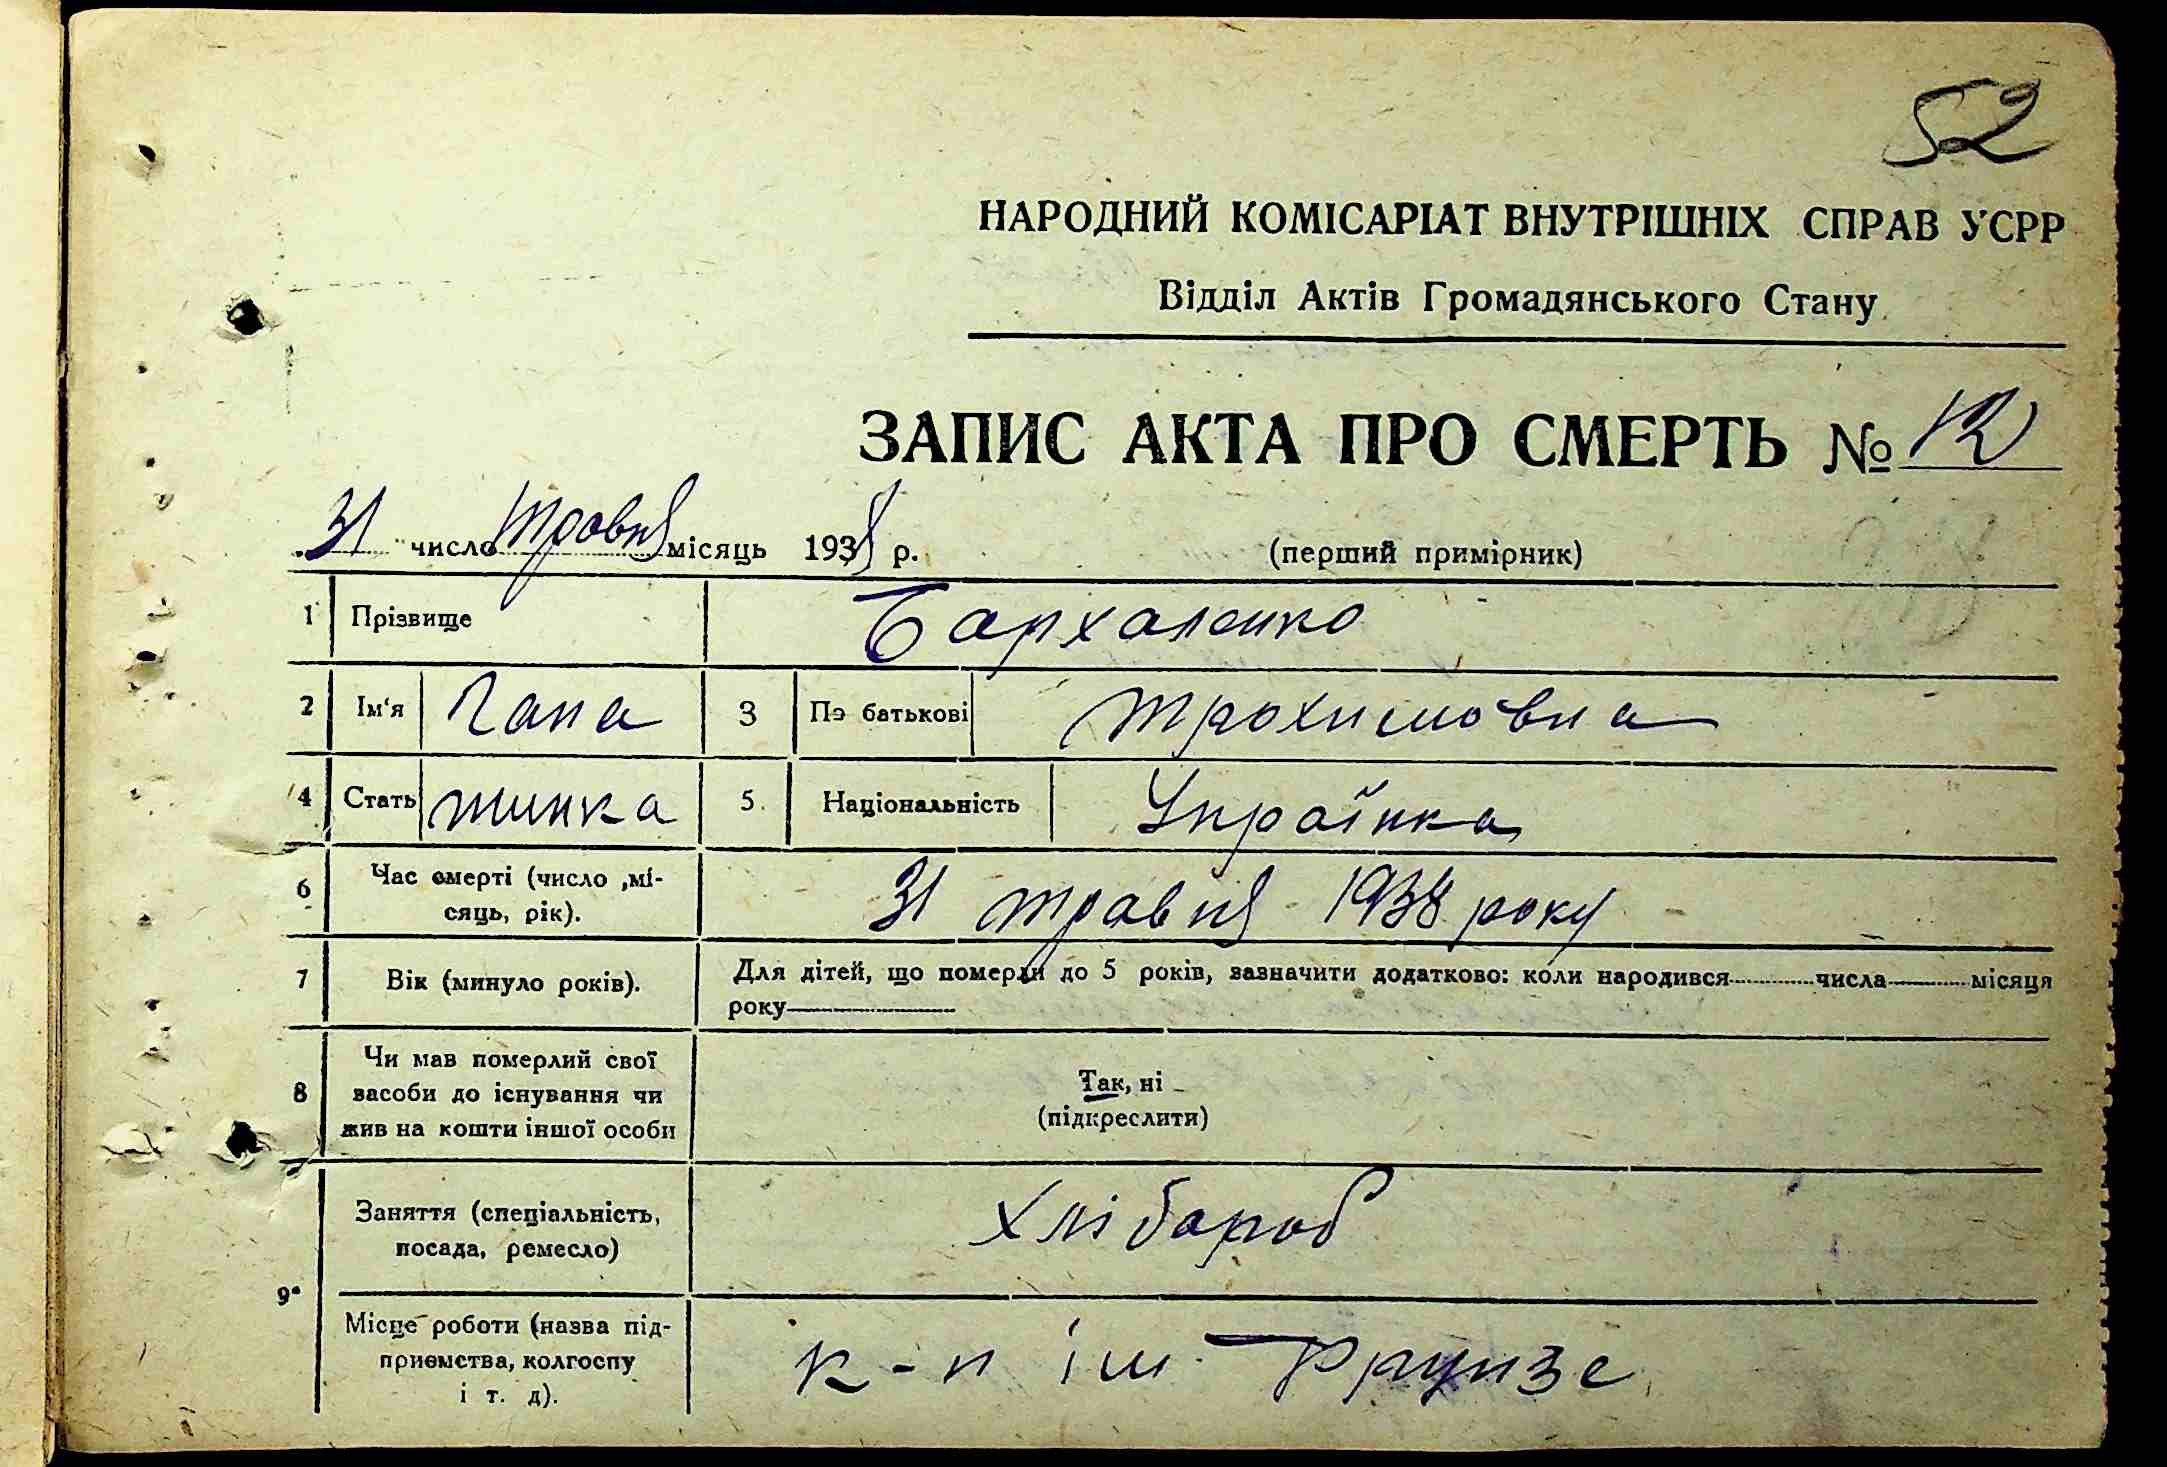 52
НАРОДНИЙ КОМІСАРІАТ ВНУТРІШНІХ СПРАВ УСРР
Відділ Актів Громадянського Стану
ЗАПИС АКТА ПРО СМЕРТЬ № 12
31 число травня місяць 1938 р. (перший примірник)
1 Прізвище Бархаленко
2 Ім'я Гапа 3 По батькові Трохимовна
4 Стать жинка 5. Національність Українка
6 Час смерті (число ,мі-
сяць, рік). 31 травня 1938 року
7 Вік (минуло років). Для дітей, що померли до 5 років, зазначити додатково: коли народився числа місяця
року
8 Чи мав померлий свої
засоби до існування чи
жив на кошти іншої особи
Так, ні
(підкреслити)
9 Заняття (спеціальність,
посада, ремесло) Хлібароб
Місце роботи (назва під-
приємства, колгоспу
і т. д). к-п ім. Фрунзе